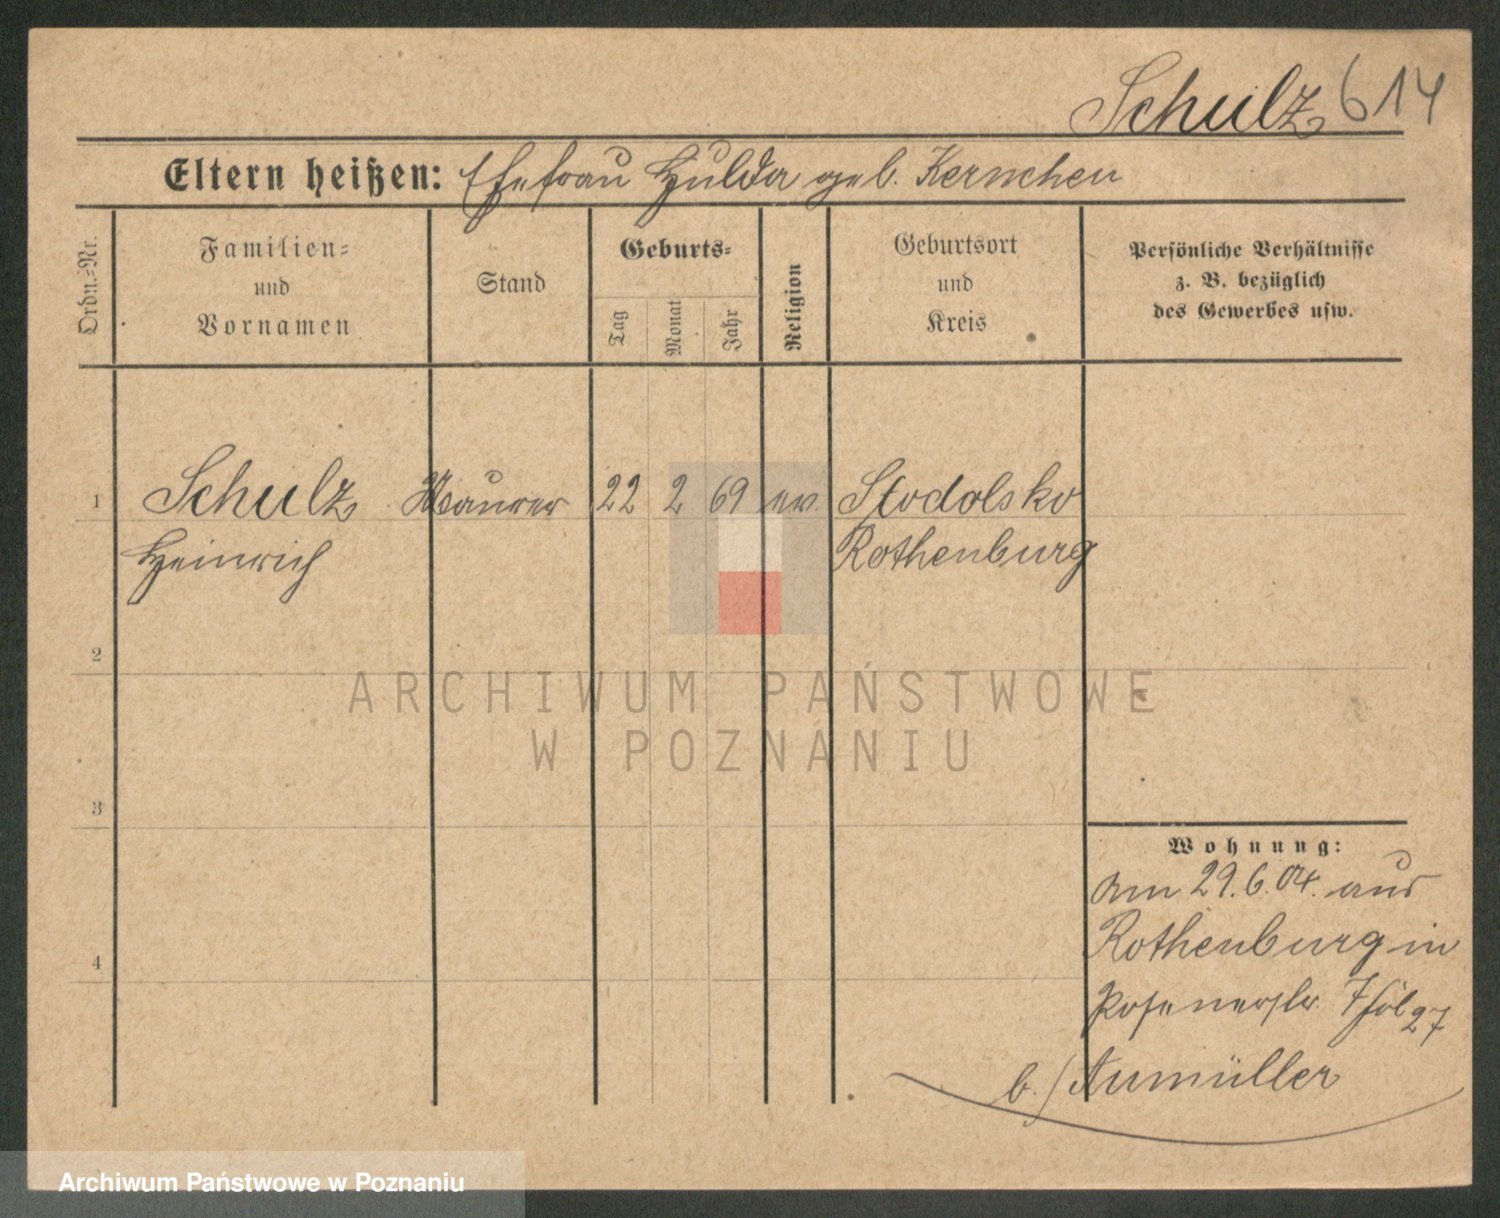 Schulz 614
Eltern heißen: Ehefrau Hulda geb. Kernchen
Ordn.-Nr.
Familien-
und
Vornamen
Stand
Geburts-
Tag
Monat
Jahr
Religion
Geburtsort
und
Kreis
Persönliche Verhältnisse
z. B. bezüglich
des Gewerbes usw.
1 Schulz Maurer 22 2 69 ev. Stodolsko
Heinrich Rothenburg
2
ARCHIWUM PAŃSTWOWE
W POZNANIU
3
Wohnung:
am 29.6.04. aus
4
Rothenburg in
Posenerstr. 27
b./ Aumüller
Archiwum Państwowe w Poznaniu